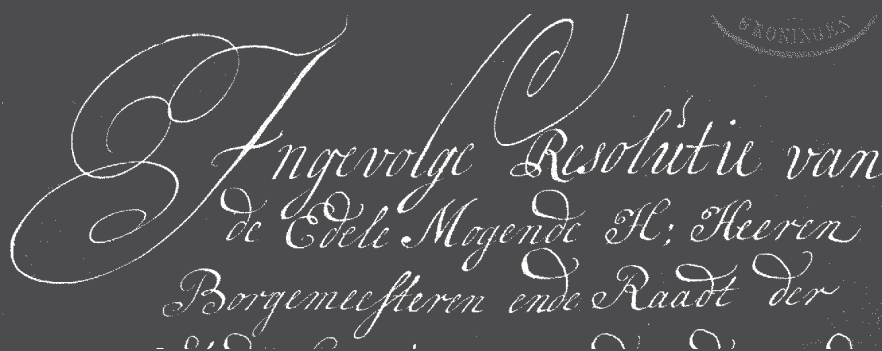 GRONINGEN
Ingevolge Resolutie van
de Edele Mogende H; Heeren
Borgemeesteren ende Raadt der